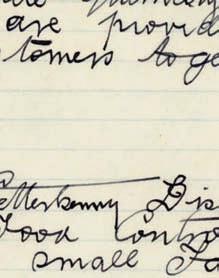 are provid
tomers to ge
Letterkenny Dis
Food Contro
small Fa